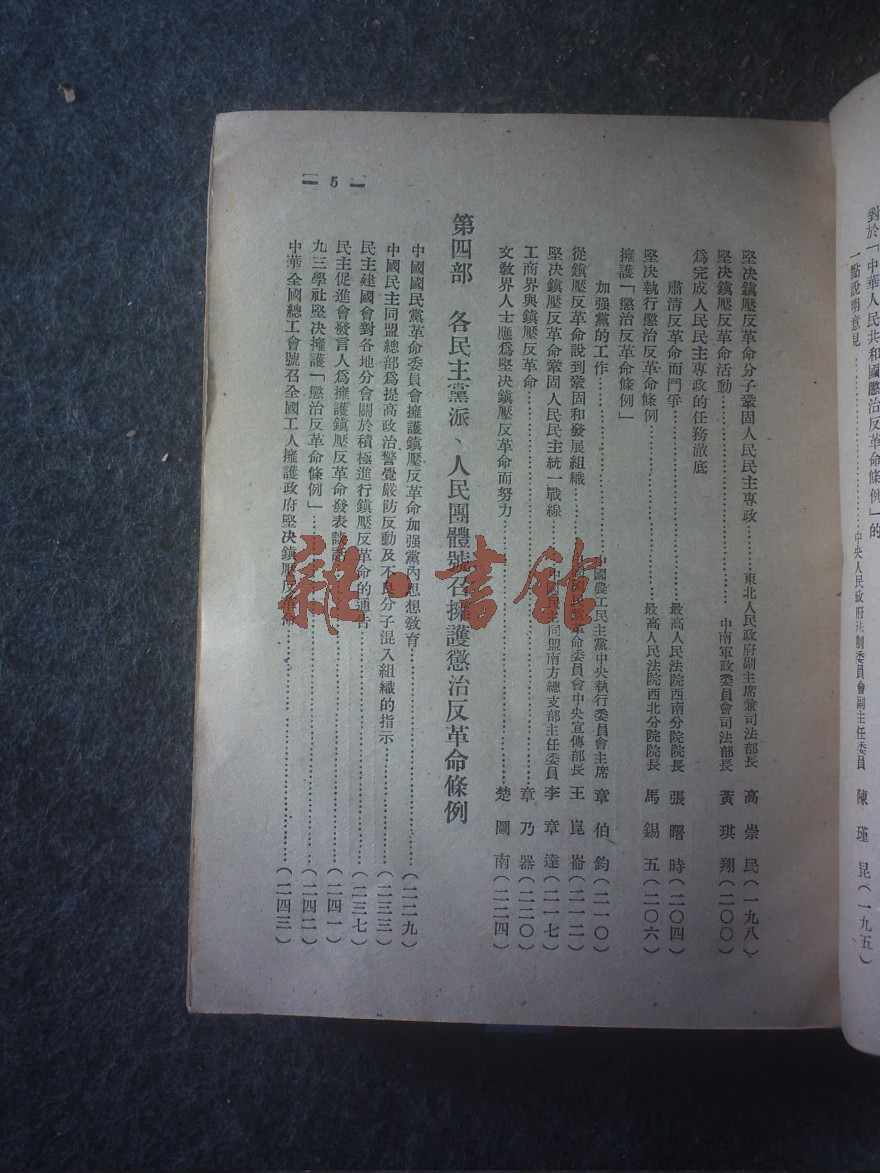 對於「中華人民共和國懲治反革命條例」的
一點說明意見……………中央人民政府法制委員會副主任委員 陳瑾昆(一九五)
堅決鎮壓反革命分子鞏固人民民主專政……東北人民政府副主席兼司法部長 高崇民(一九八)
堅決鎮壓反革命活動……………中南軍政委員會司法部長 黃琪翔(二〇〇)
爲完成人民民主專政的任務澈底
肅清反革命而鬥爭……………最高人民法院西南分院院長 張曙時(二〇四)
堅決執行懲治反革命條例……………最高人民法院西北分院院長 馬錫五(二〇六)
擁護「懲治反革命條例」
加强黨的工作……………中國農工民主黨中央執行委員會主席 章伯鈞(二一〇)
從鎮壓反革命說到鞏固和發展組織……國民黨革命委員會中央宣傳部長 王崑崙(二一二)
堅決鎮壓反革命鞏固人民民主統一戰線……中國民主同盟南方總支部主任委員 李章達(二一七)
工商界與鎮壓反革命……………章乃器(二二〇)
文敎界人士應爲堅決鎮壓反革命而努力……………楚圖南(二二四)
第四部 各民主黨派、人民團體號召擁護懲治反革命條例
中國國民黨革命委員會擁護鎮壓反革命加强黨內思想敎育……………(二二九)
中國民主同盟總部爲提高政治警覺嚴防反動及不良分子混入組織的指示……………(二三三)
民主建國會對各地分會關於積極進行鎮壓反革命的通告……………(二三七)
民主促進會發言人爲擁護鎮壓反革命發表談話……………(二四一)
九三學社堅決擁護「懲治反革命條例」……………(二四二)
中華全國總工會號召全國工人擁護政府堅決鎮壓反革命……………(二四三)
5
雜·書館